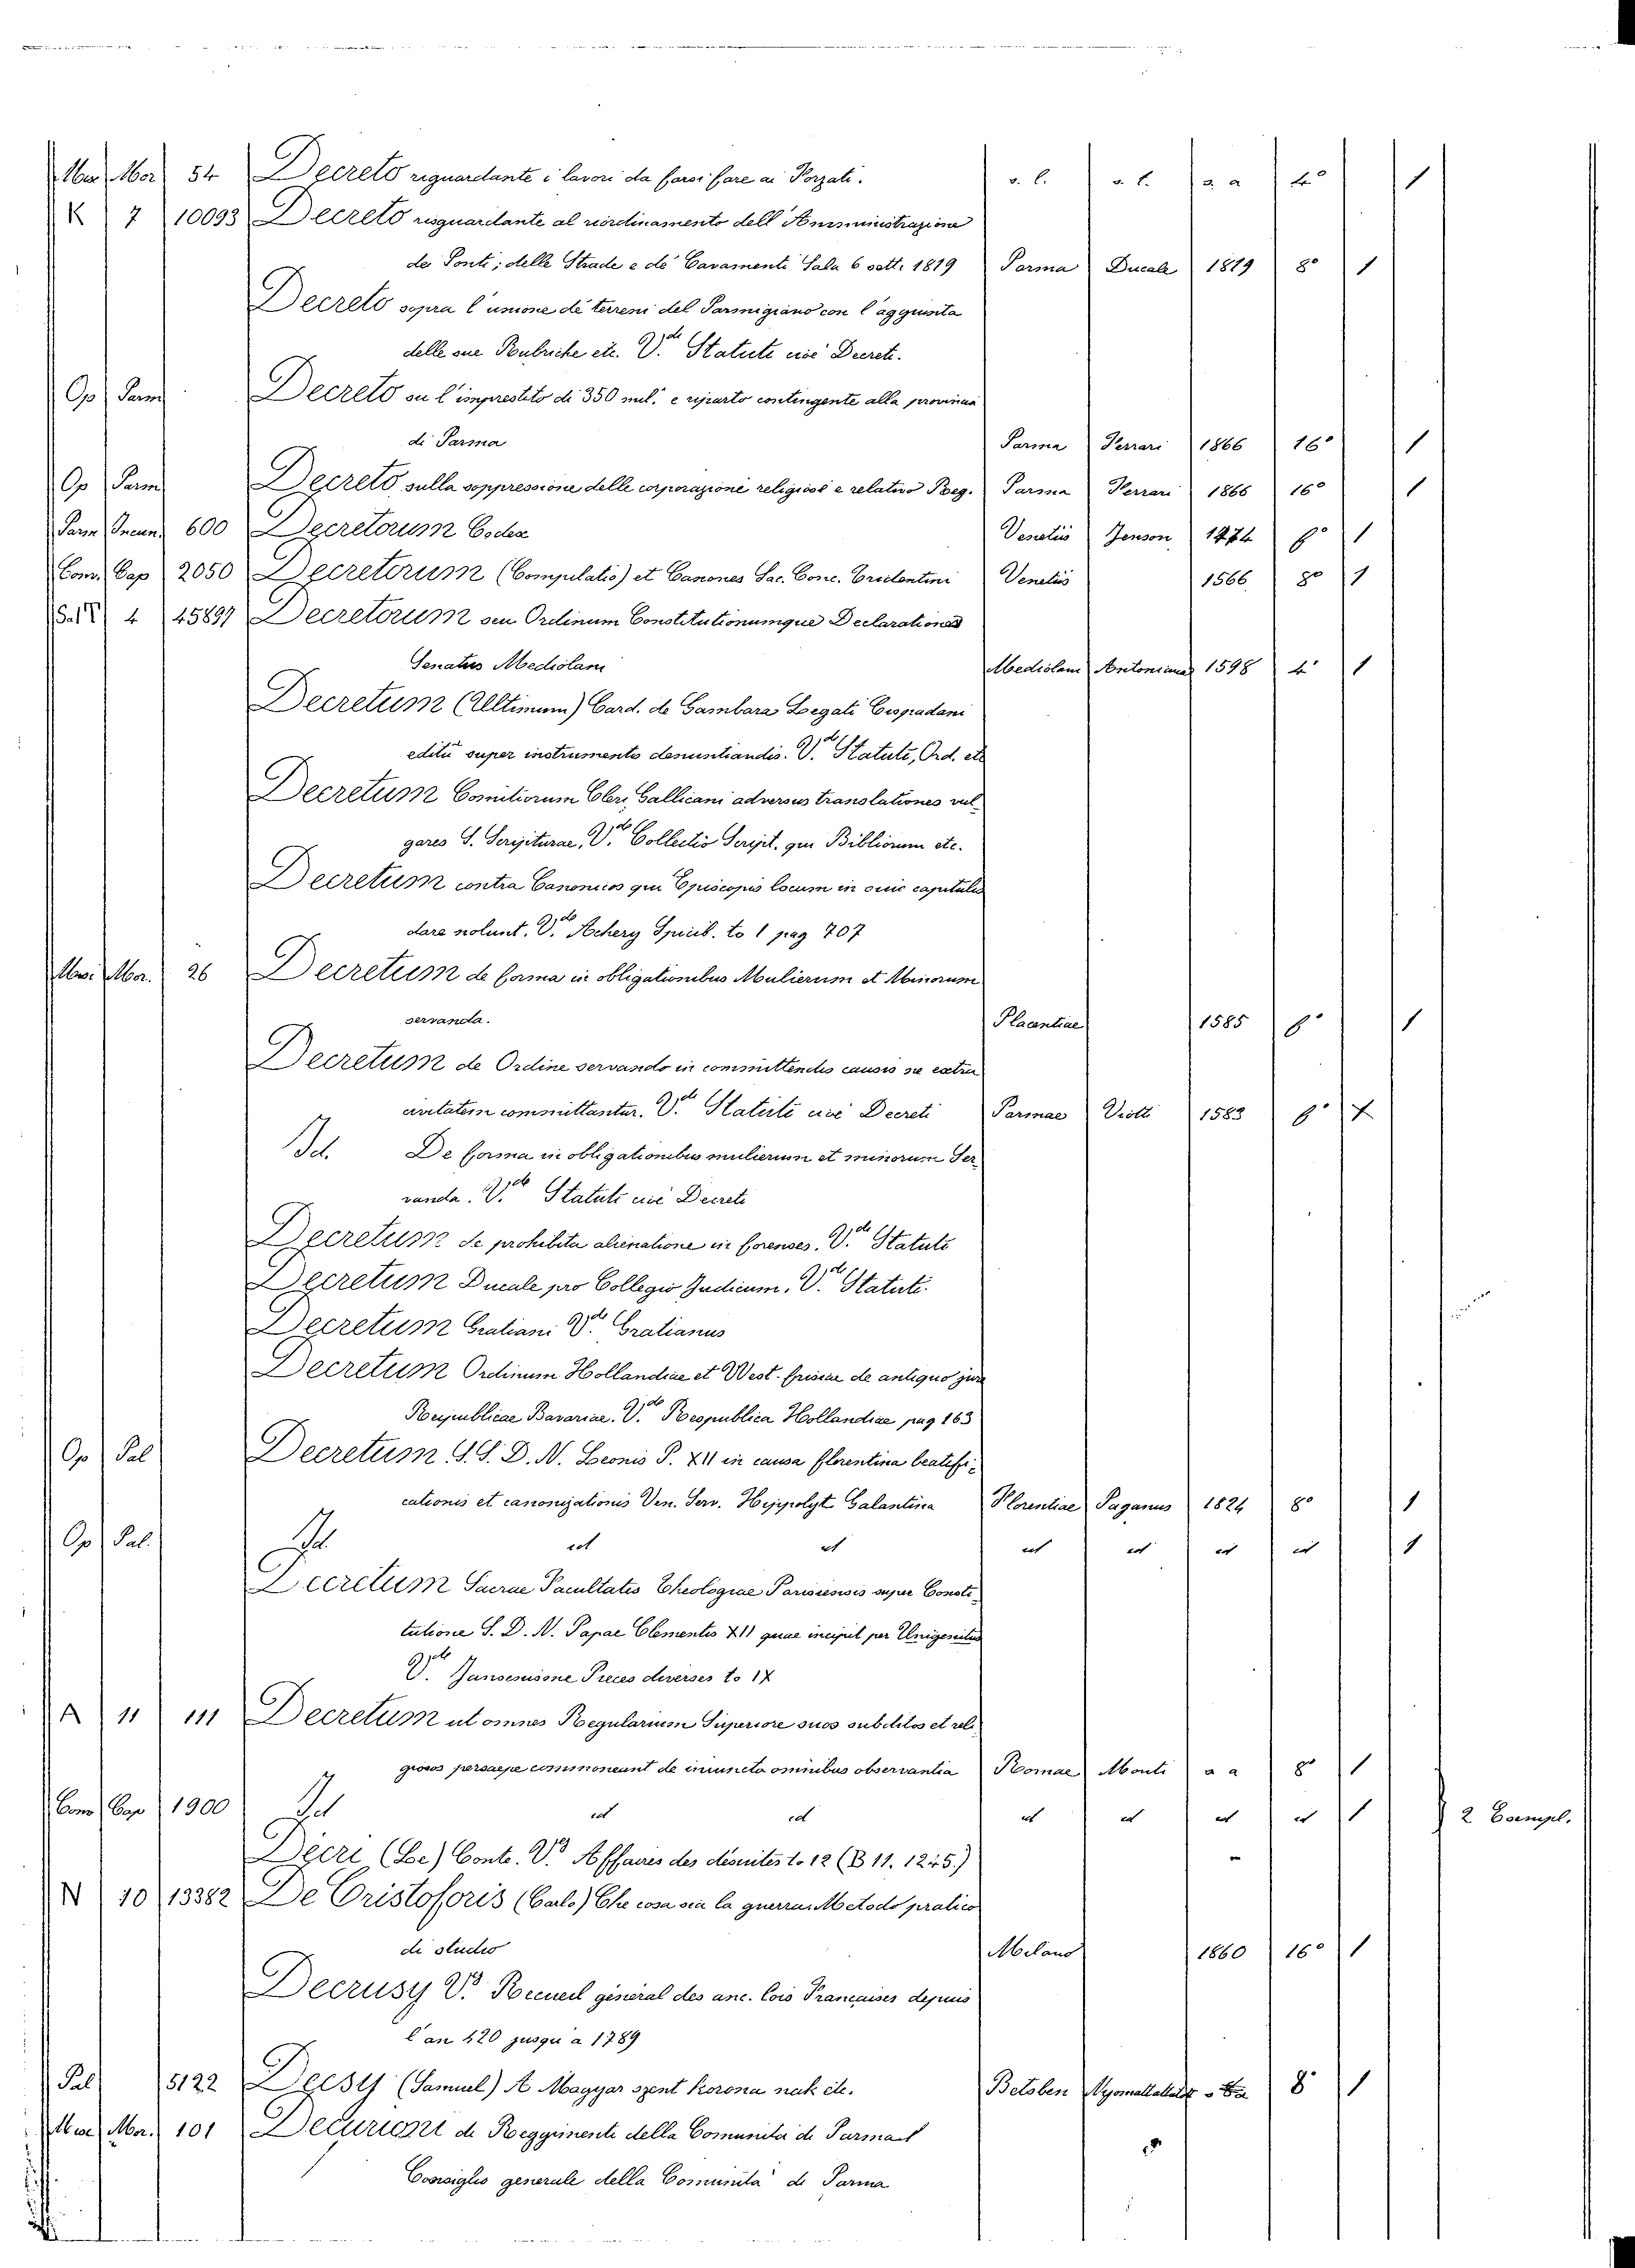 Mss. Mor. 54 Decreto riguardante i lavori da farsi fare ai Forzati. s. l. s. t. s. a 4° 1
K 7 10093 Decreto risguardante al riordinamento dell'Amministrazione
dei Ponti; delle Strade e de' Cavamenti Sala 6 sett. 1819 Parma Ducale 1819 8° 1
Decreto sopra l'unione de' terreni del Parmigiano con l'aggiunta
delle sue Rubriche etc. V.de Statuti cioè Decreti.
Op Parm Decreto su l'imprestito di 350 mil. e riparto contingente alla provincia
di Parma Parma Ferrari 1866 16° 1
Op Parm Decreto sulla soppressione delle corporazioni religiose e relativo Reg. Parma Ferrari 1866 16° 1
Parm Incun 600 Decretorum Codex Venetiis Jenson 1474 f° 1
Conv. Cap 2050 Decretorum (Compilatio) et Canones Sac. Conc. Tridentini Venetiis 1566 8° 1
Sal T 4 45897 Decretorum seu Ordinum Constitutionumque Declarationes
Senatus Mediolani Mediolani Antonianus 1598 4° 1
Decretum (Ultimum) Card. de Gambara Legati Cispadani
editu super instrumentis denuntiandis. V.de Statuti, Ord. etc
Decretum Comitiorum Cleri Gallicani adversus translationes vul-
gares S. Scripturae, V.de Collectio Script. qui Bibliorum etc.
Decretum contra Canonicos qui Episcopis locum in suis capitulis
dare nolunt. V.de Achery Spicil. to 1 pag 707
Mss. Mor. 26 Decretum de forma in obligationibus Mulierum et Minorum
servanda. Placentiae 1585 f° 1
Decretum de Ordine servando in committendis causis ne extra
civitatem committantur. V.de Statuti cioè Decreti Parmae Viotti 1583 f°
Id. De forma in obligationibus mulierum et minorum ser-
vanda. V.de Statuti cioè Decreti
Decretum de prohibita alienatione in forenses. V.de Statuti
Decretum Ducale pro Collegio Judicum. V.de Statuti.
Decretum Gratiani V.de Gratianus
Decretum Ordinum Hollandiae et West-frisiae de antiquo jure
Reipublicae Bavariae. V.de Respublica Hollandiae pag 163
Op Pal Decretum S. S. D. N. Leonis P. XII in causa florentina beatifi-
cationis et canonizationis Ven. Serv. Hippolyt Galantina Florentiae Paganus 1824 8° 1
Op Pal. Id. id id id id id id 1
Decretum Sacrae Facultatis Theologiae Parisiensis super Consti-
tutione S. D. N. Papae Clementis XII quae incipit per Unigenitus
V.de Jansenisme Pieces diverses to 17
A 11 111 Decretum ut omnes Regularium Superiore suos subditos et reli-
giosos persaepe commoneant de iniuncta omnibus observantia Romae Monti a a 8° 1
Conv Cap 1900 Id id id id id id id 1 2 Esempl.
Decri (Le) Conte. V.de Affaires des Jésuites to 12 (B 11. 1245.)
N 10 13382 De Cristoforis (Carlo) Che cosa sia la guerra. Metodo pratico
di studio Milano 1860 16° 1
Decrusy V.de Recueil général des anc. lois Françaises depuis
l'an 420 jusqu'a 1789
Pal 15122 Decsy (Samuel) A Magyar szent Korona nak etc. Betsben 8° 1
Mss. Mor. 101 Decurioni di Reggimenti della Comunita di Parma
Consiglio generale della Comunita' di Parma